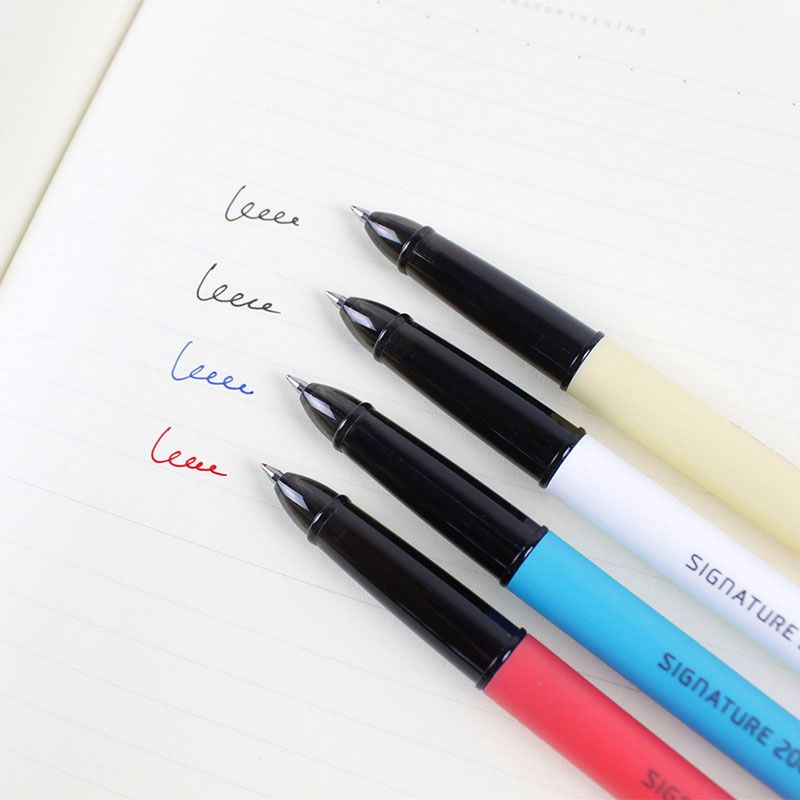 RSTORYBEGINS
SIGNATURE
SIGNATURE 20
SIG